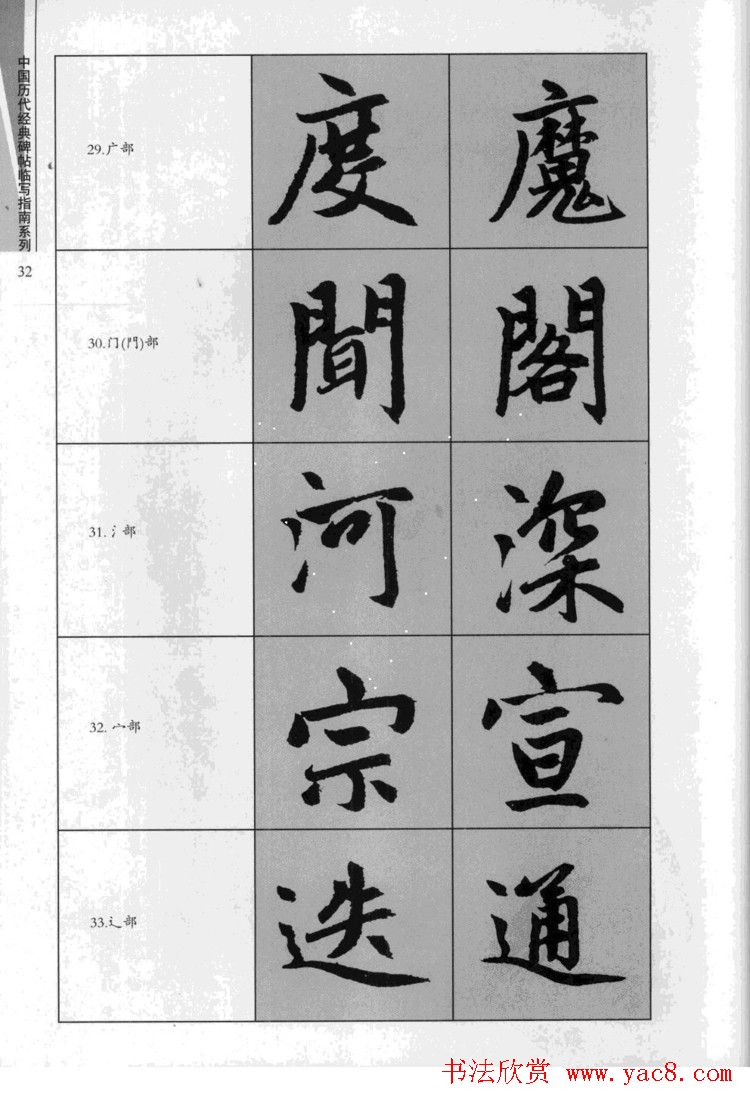 中国历代经典碑帖临写指南系列
32
29.广部
度 魔
30.门(門)部
聞 閣
31.氵部
河 深
32.宀部
宗 宣
33.辶部
迭 通
书法欣赏 www.yac8.com